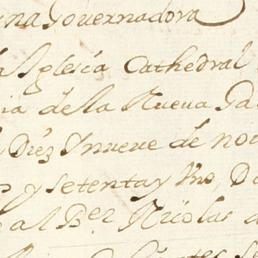 ina Governadora
Iglesia Cathedral
ia de la Nueva Ga
Diez Y nueve de no
y setenta y Uno, D
al B.er Nicolas d